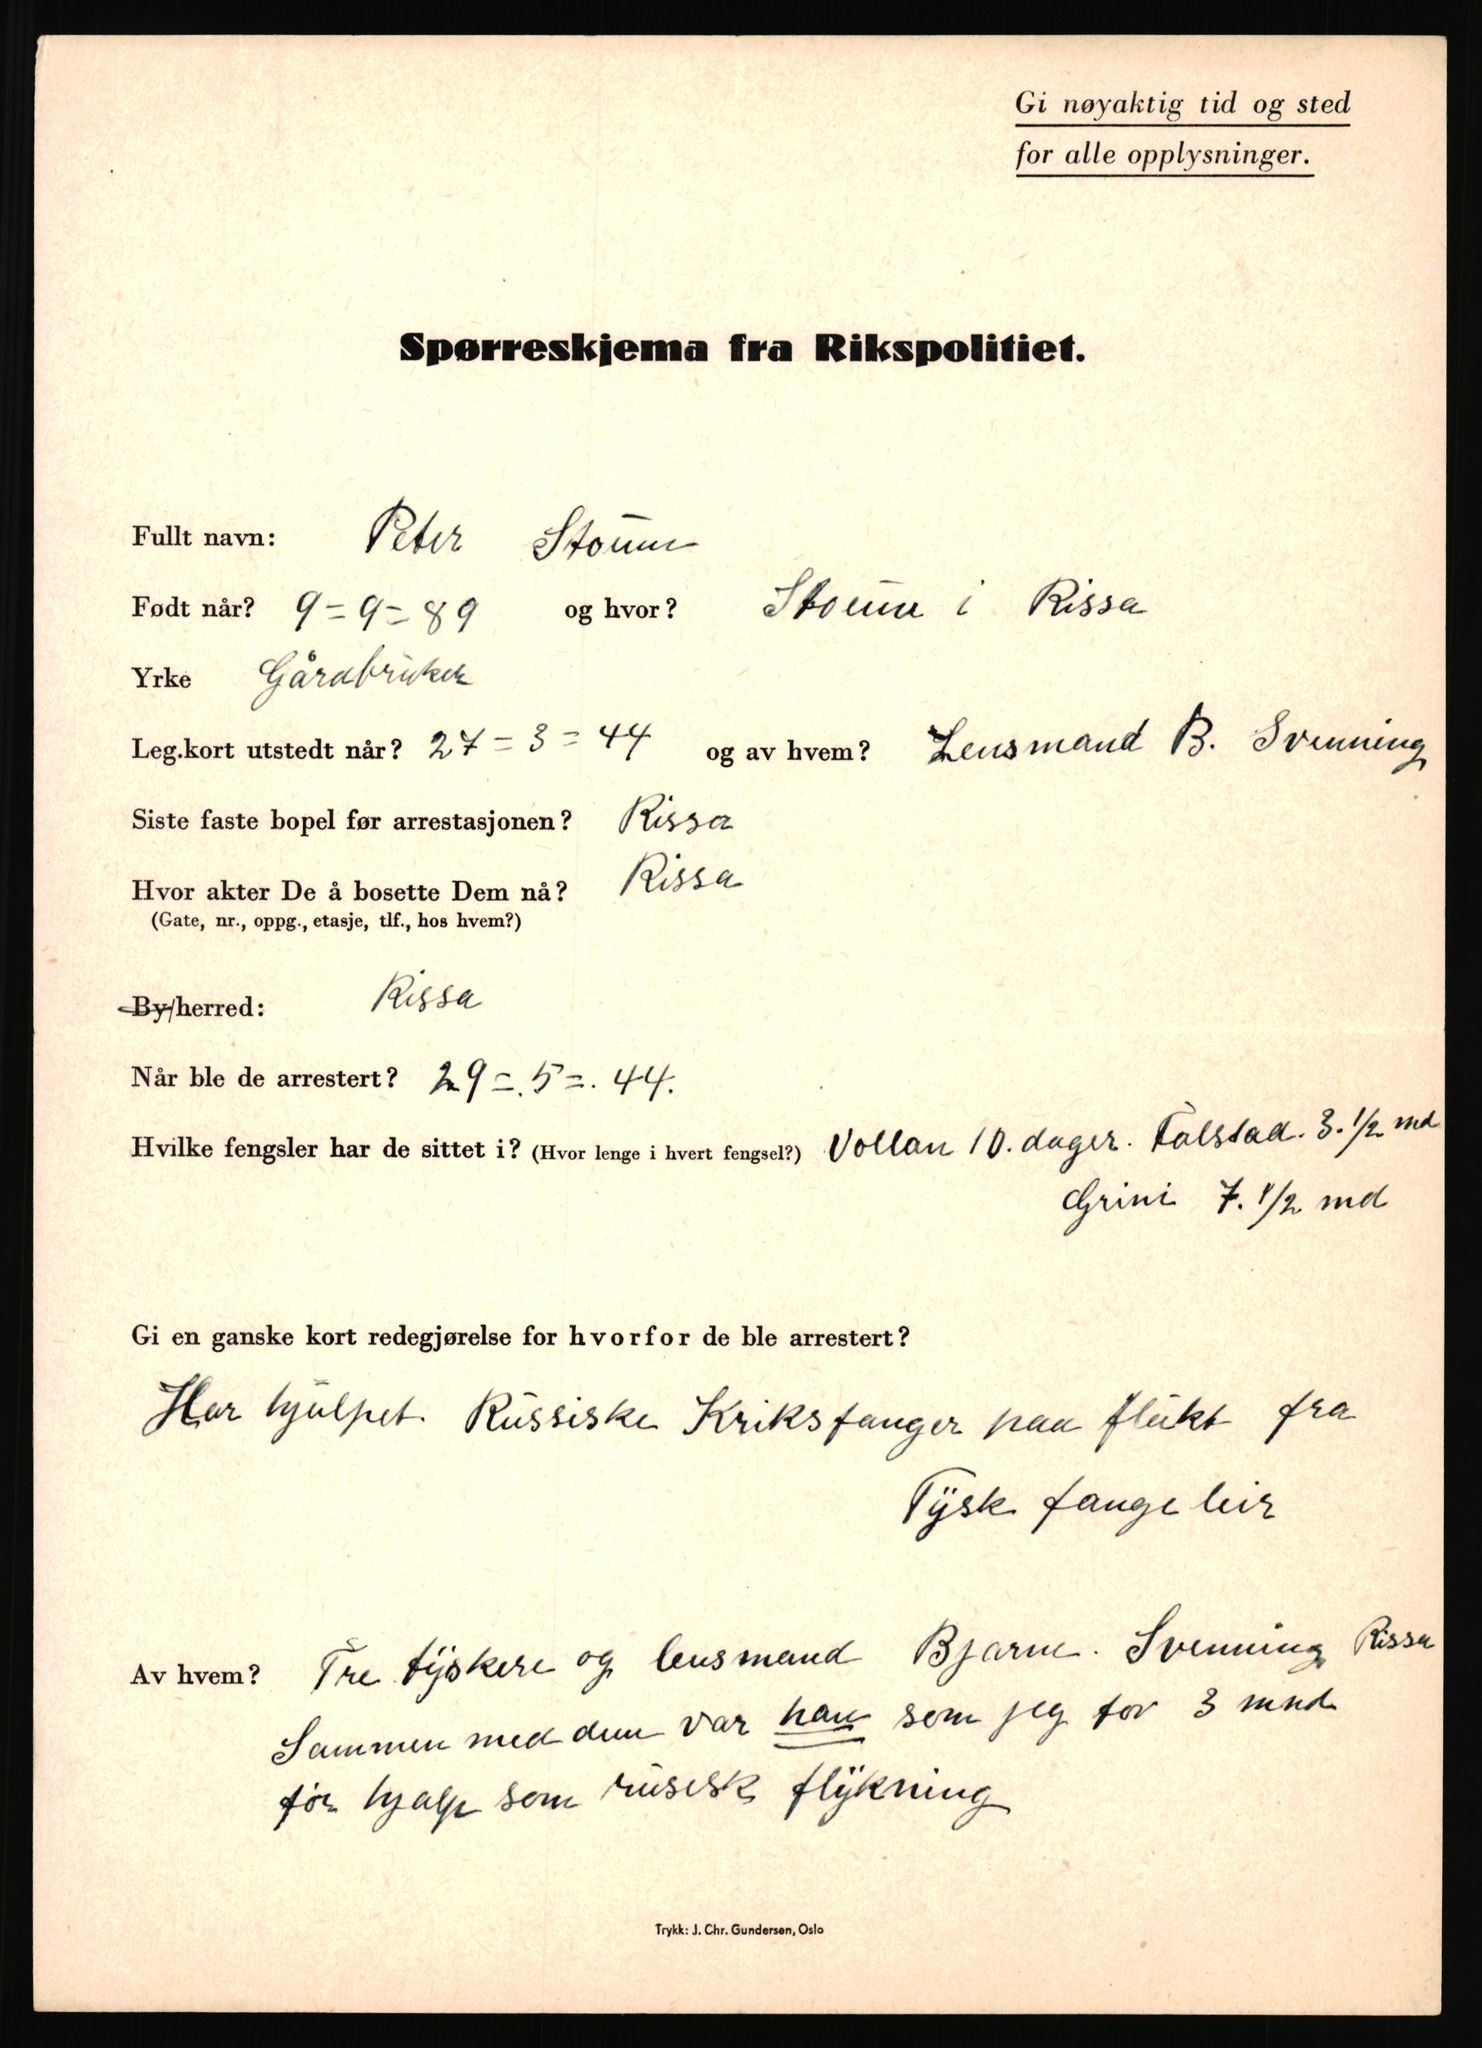 Gi nøyaktig tid og sted
for alle opplysninger.
Spørreskjema fra Rikspolitiet.
Fullt navn: Peter Stoum
Født når? 9-9-89 og hvor? Stoum i Rissa
Yrke Gårdbruker
Leg.kort utstedt når? 27-3-44 og av hvem? Lensmand B. Svenning
Siste faste bopel før arrestasjonen? Rissa
Hvor akter De å bosette Dem nå? Rissa
(Gate, nr., oppg., etasje, tlf., hos hvem?)
By/herred: Rissa
Når ble de arrestert? 29-5-44.
Hvilke fengsler har de sittet i? (Hvor lenge i hvert fengsel?) Vollan 10. dager. Falstad. 3. 1/2 md
Grini 7. 1/2 md
Gi en ganske kort redegjørelse for hvorfor de ble arrestert?
Har hjulpet Russiske Kriksfanger paa flukt fra
Tysk fange leir
Av hvem? Tre tyskere og lensmand Bjarne. Svenning Rissa
Sammen med dem var han som jeg for 3 mnd
før hjalp som rusisk flykning
Trykk: J. Chr. Gundersen, Oslo